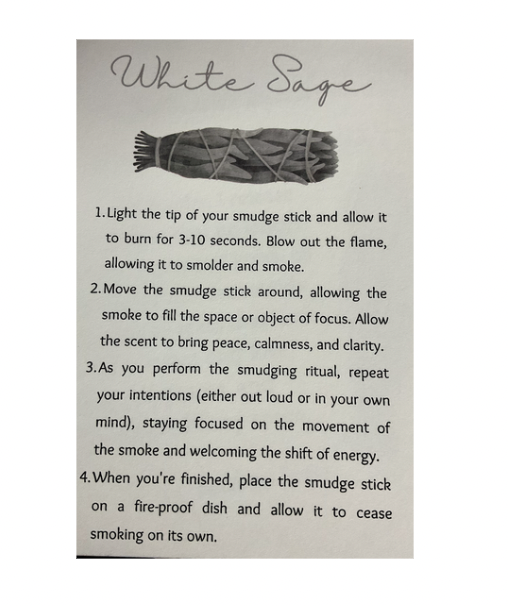 White Sage
1.Light the tip of your smudge stick and allow it
to burn for 3-10 seconds. Blow out the flame,
allowing it to smolder and smoke.
2.Move the smudge stick around, allowing the
smoke to fill the space or object of focus. Allow
the scent to bring peace, calmness, and clarity.
3.As you perform the smudging ritual, repeat
your intentions (either out loud or in your own
mind), staying focused on the movement of
the smoke and welcoming the shift of energy.
4.When you're finished, place the smudge stick
on a fire-proof dish and allow it to cease
smoking on its own.